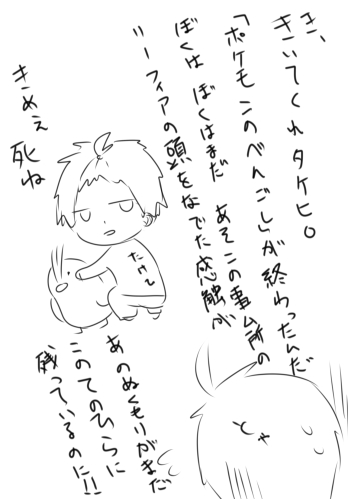 き、
きいてくれタケヒロ
「ポケモンのべんごし」が終わったんだ
ぼくは ぼくはまだ あそこの事ム所の
リーフィアの頭をなでた感触が
あのぬくもりがまだ
このてのひらに
残っているのに!!
きめぇ 死ね
たけし
とや